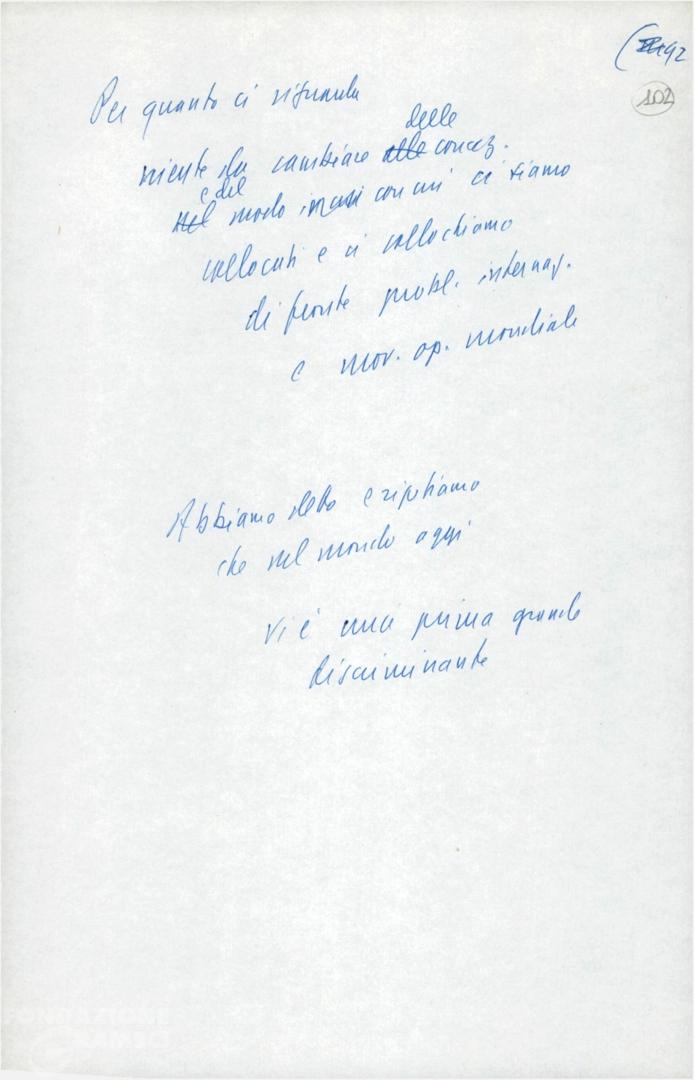 92
102
Per quanto ci riguarda
delle
niente da cambiare alle concez.
e del
nel modo in cui ci siamo
collocati e ci collochiamo
di fronte probl. internaz.
e mov. op. mondiale
Abbiamo detto e ripetiamo
che nel mondo oggi
vi è una prima grande
discriminante